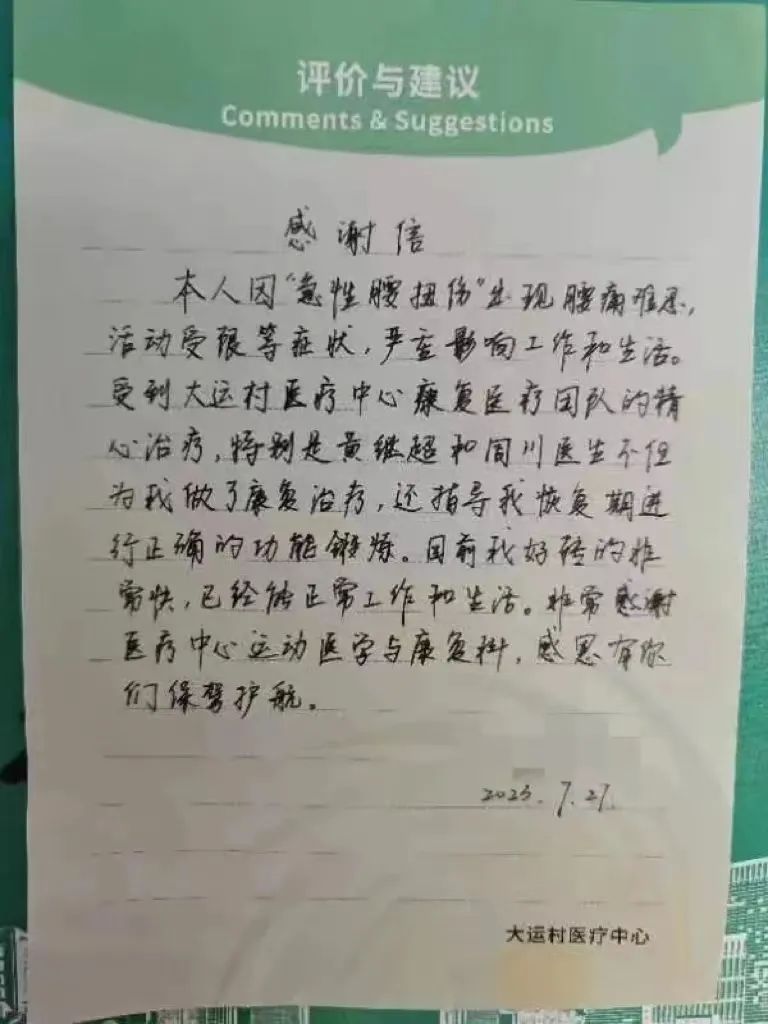 评价与建议
Comments & Suggestions
感谢信
本人因“急性腰扭伤”出现腰痛难忍,
活动受限等症状,严重影响工作和生活。
受到大运村医疗中心康复医疗团队的精
心治疗,特别是黄继超和周川医生不但
为我做了康复治疗,还指导我恢复期进
行正确的功能锻炼。目前我好转的非
常快,已经能正常工作和生活。非常感谢
医疗中心运动医学与康复科,感恩有你
们保驾护航。
2023.7.27.
大运村医疗中心